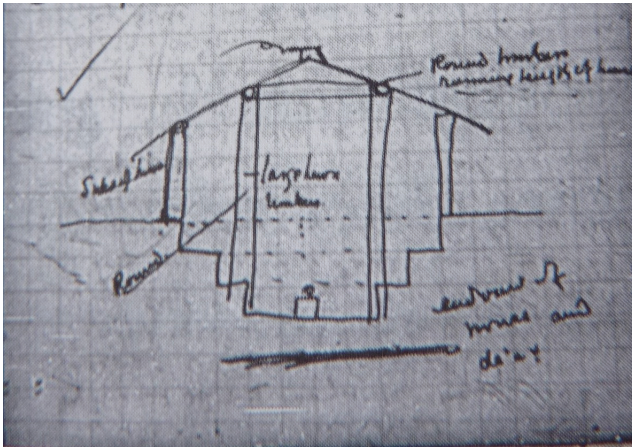 Round timbers
running length of house
Side of house
large hewn
timbers
Round
end view of
house and